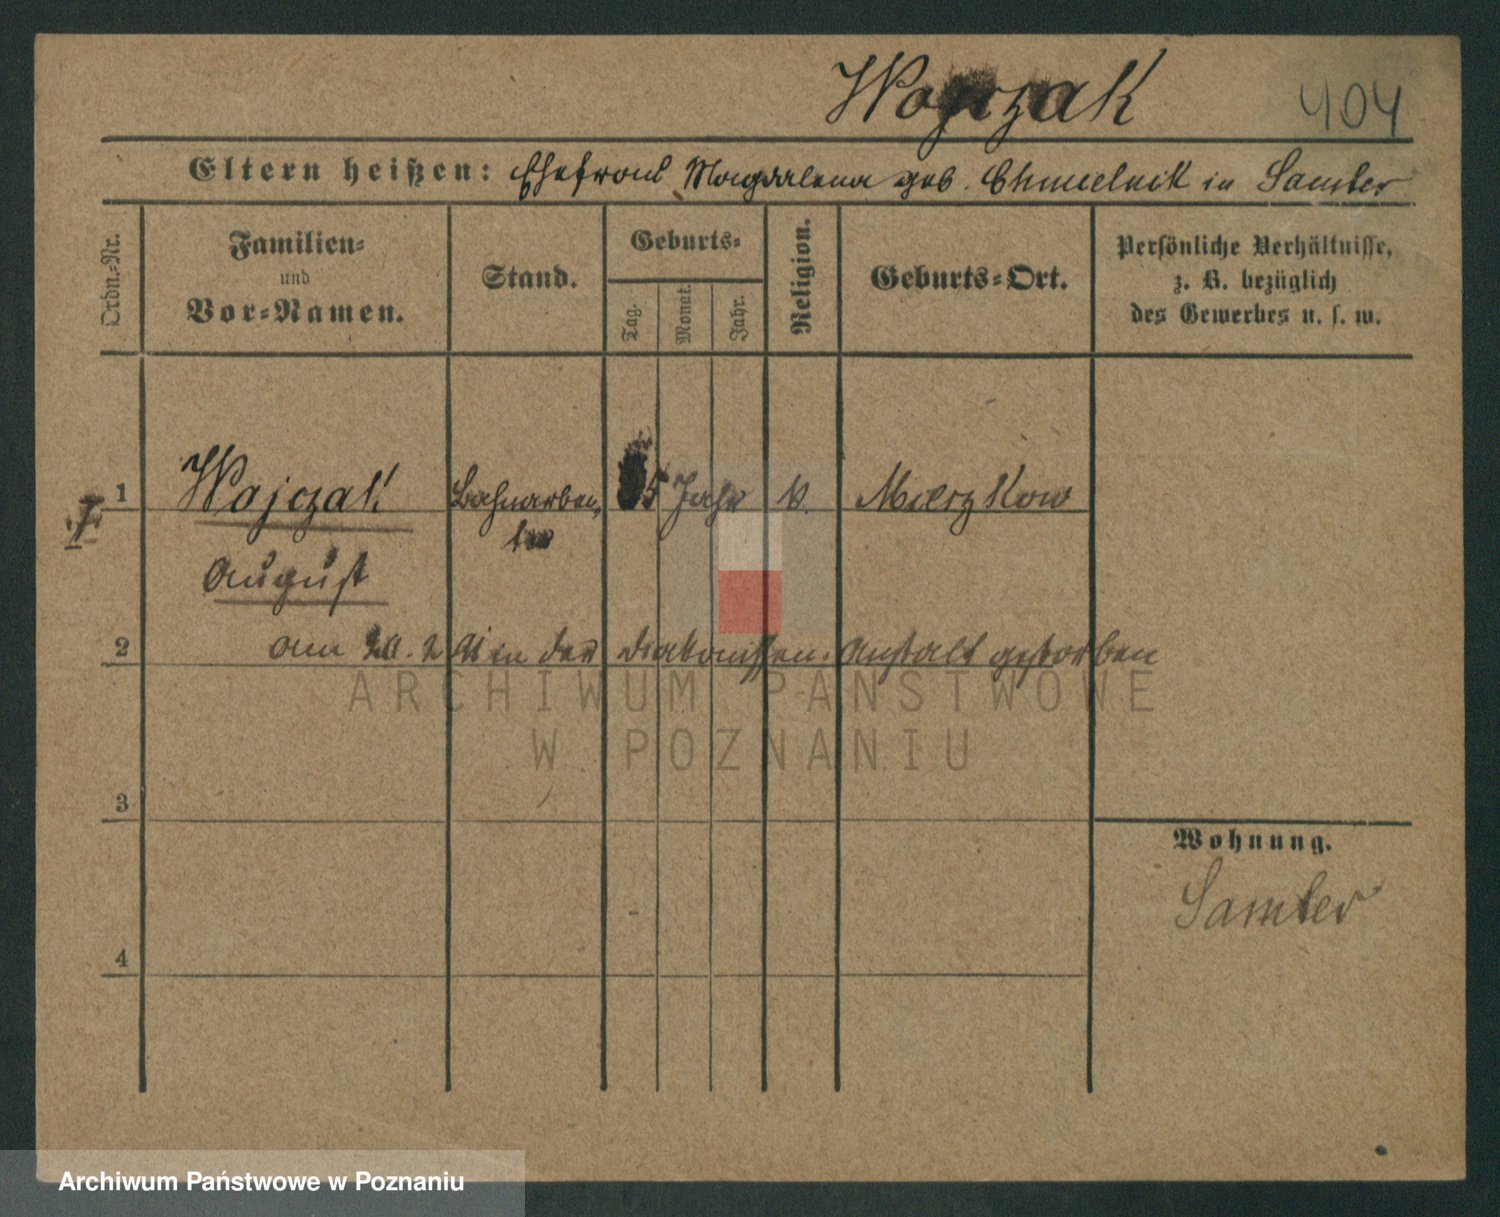 Wojczak 404
Eltern heißen: Ehefrau Magdalena geb. Chmielnik in Samter
Ordn.=Nr. Familien= und Vor=Namen. Stand. Geburts= Tag. Monat. Jahr. Religion. Geburts=Ort. Persönliche Verhältnisse, z. B. bezüglich des Gewerbes u. s. w.
1 Wojczak Bahnarbei, 5 Jahr k. Mierzkow
ter
August
2 am 20. 2 91 in der Diakonissen. Anstalt gestorben
ARCHIWUM PAŃSTWOWE
W POZNANIU
3
Wohnung.
Samter
4
Archiwum Państwowe w Poznaniu